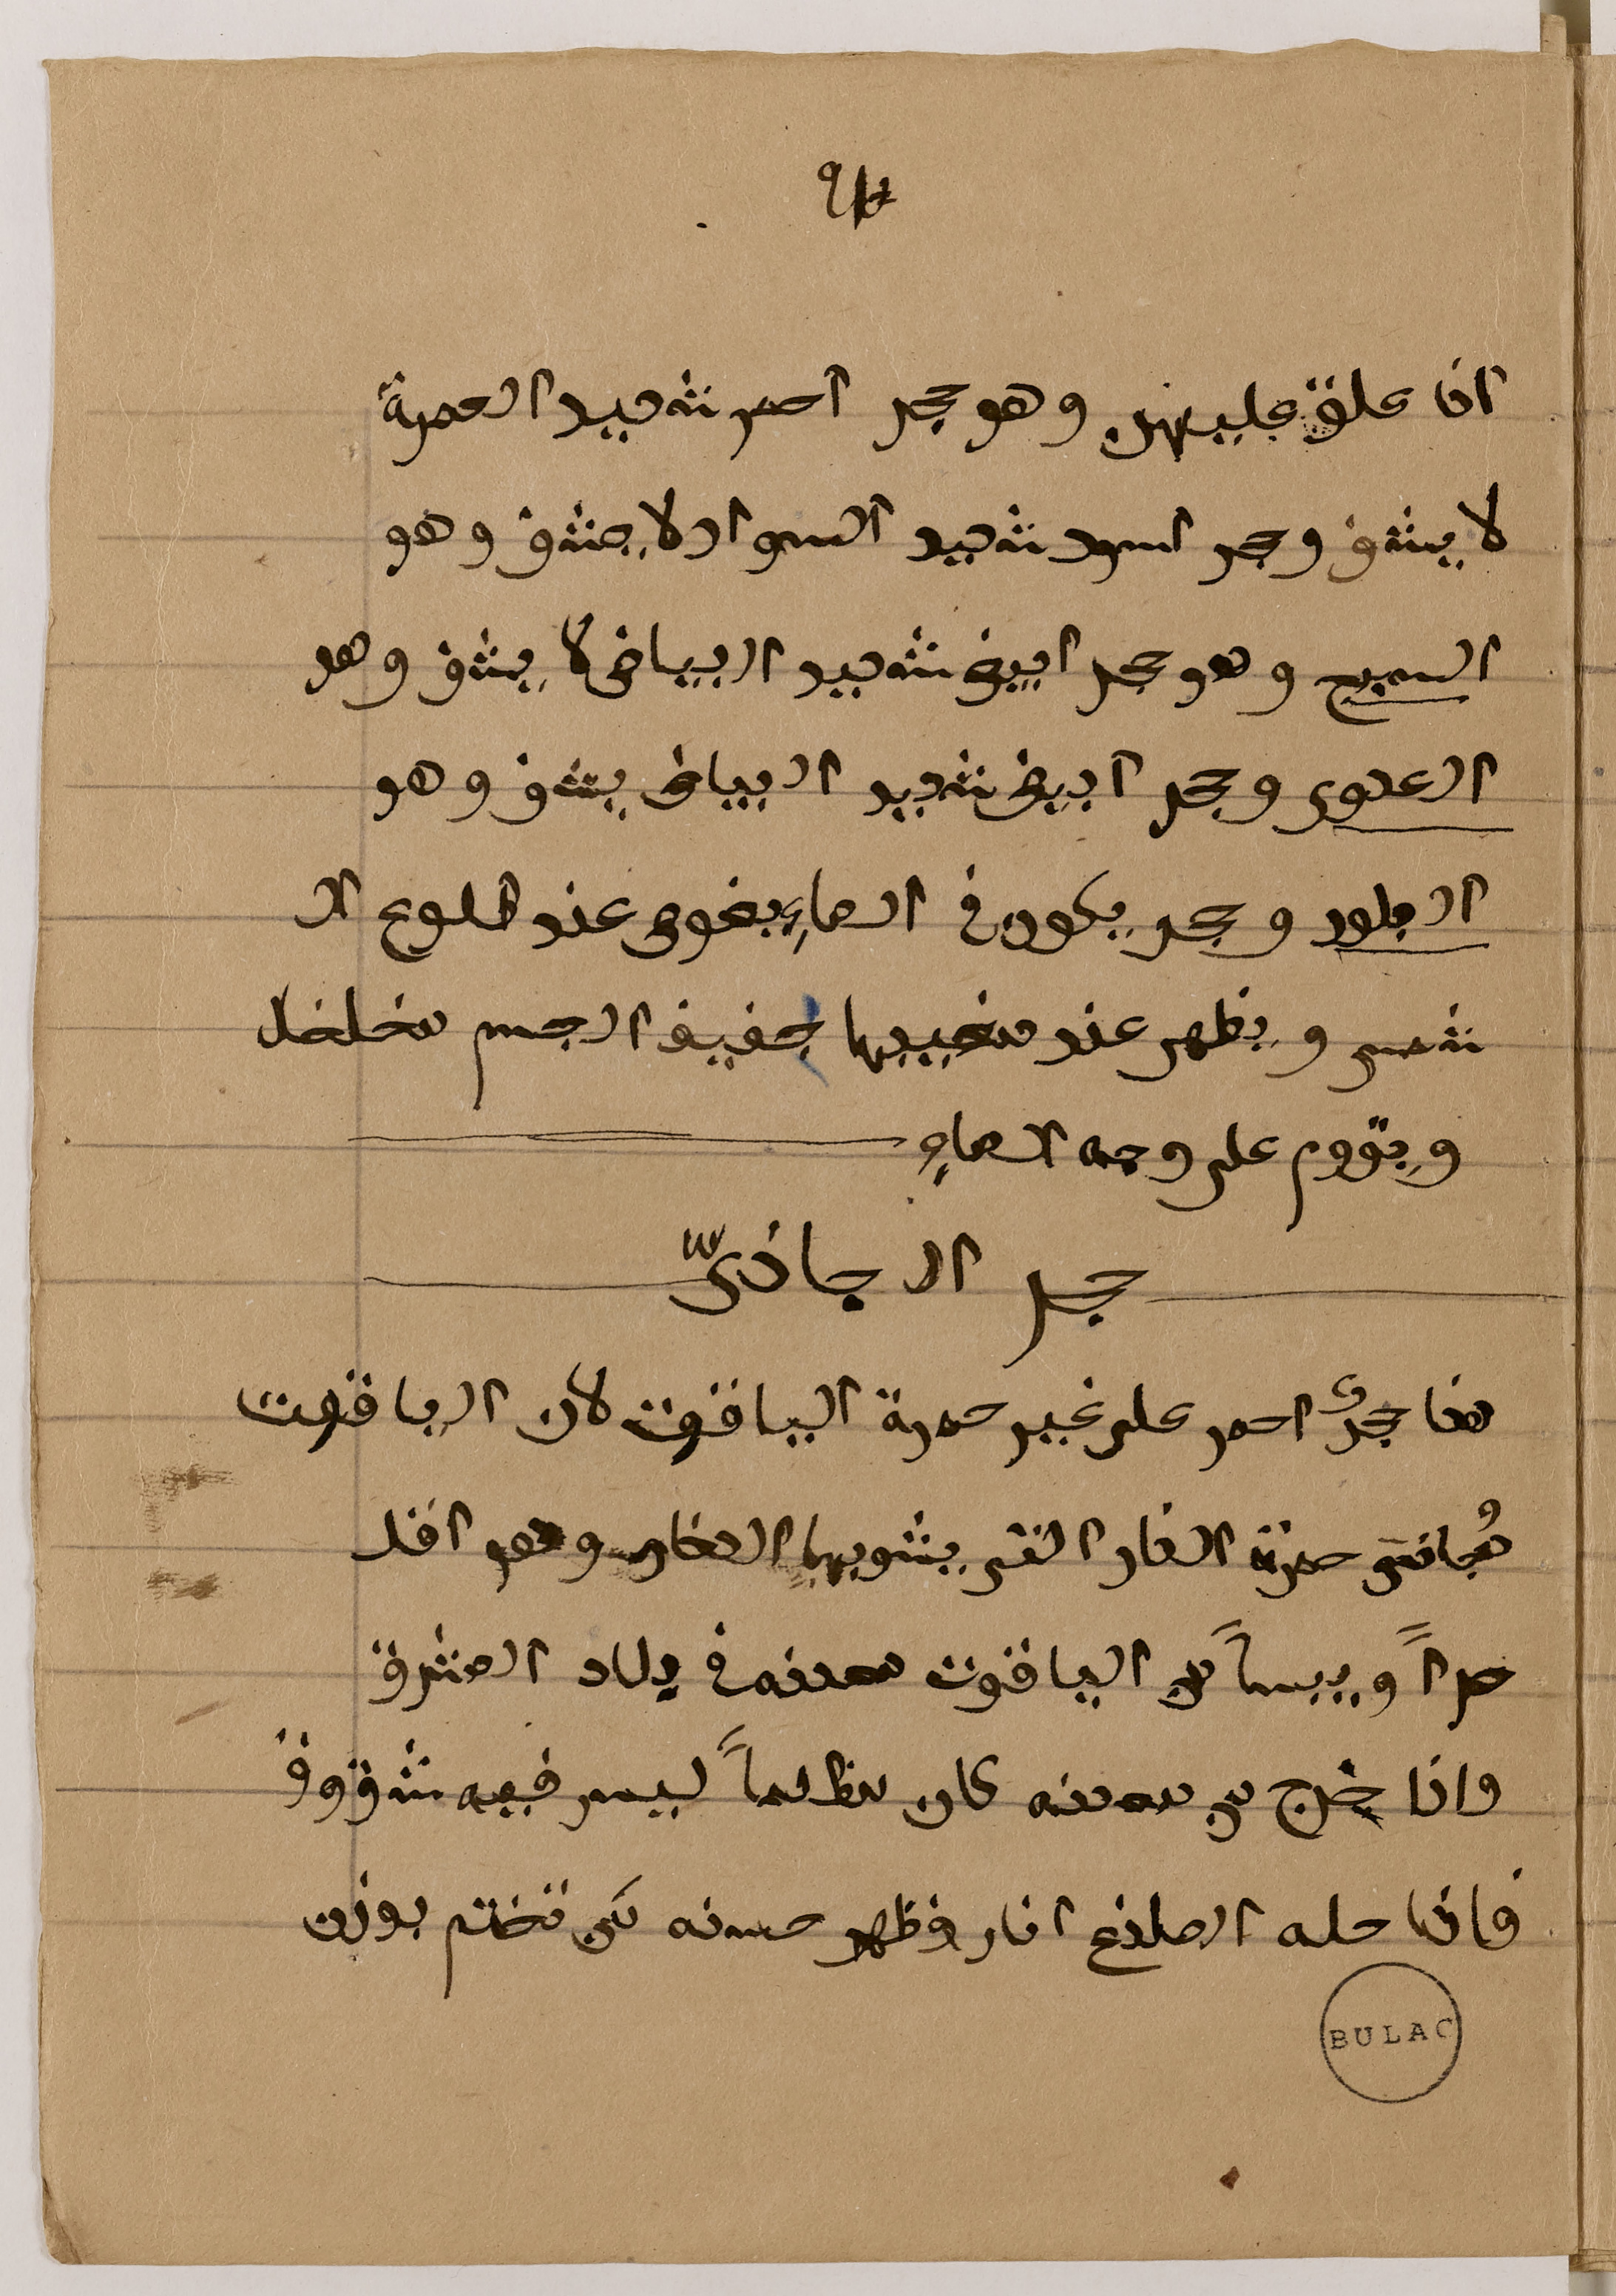 اذا علق عليهن وهو حجر احمر شديد الحمرة
لا يشف وحجر اسود شديد السواد لا يشف وهو
السبج وهو حجر ابيض شديد البياض لا يشف وهو
العدوى وحجر ابيض شديد البياض يشف وهو
البلور وحجر يكون في الماء يغوص عند طلوع الـ
شمس ويظهر عند مغيبها خفيف الجسم مخلخل
ويقوم على وجه الماء
حجر البجاذىّ
هذا حجر احمر على غير حمرة الياقوت لان الياقوت
حمرة النار التى يشوبها الدخان وهو اقل
حراً ويبساً من الياقوت معدنه في بلاد المشرق
واذا خرج من معدنه كان مظلماً ليس فيه شفوف
فاذا حله الصانع انار وظهر حسنه من تختم بوزن
BULAC